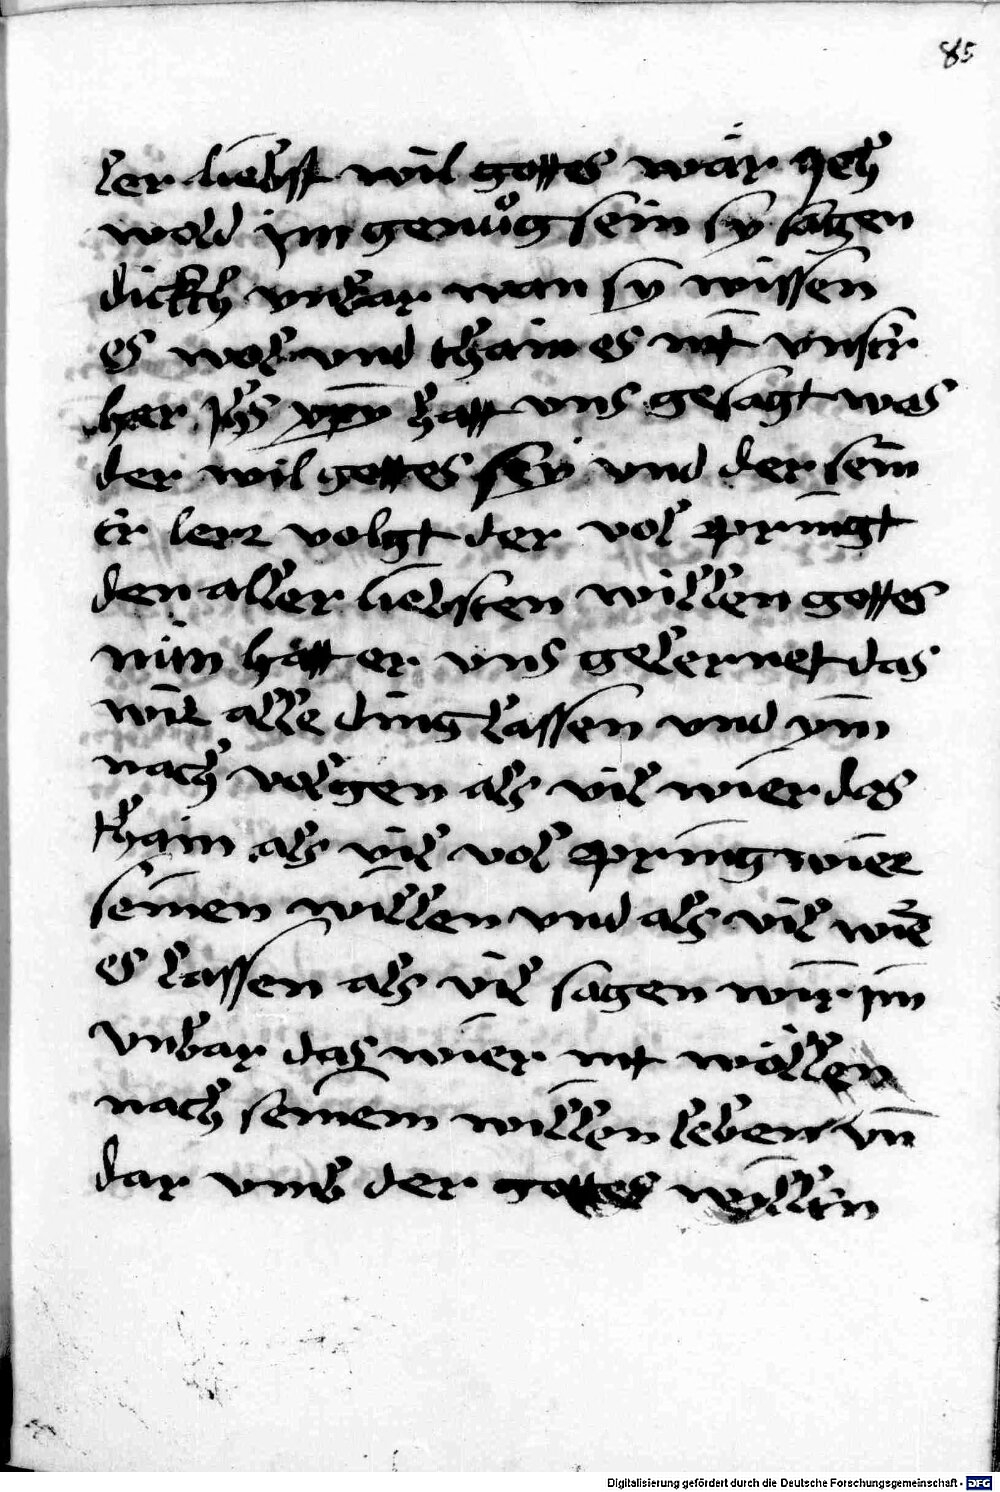 85
ler liebst wil gottes wär Ich
wold im genuͦg sein sy sagen
dickh vnbar wan sy wissen
es wol vnd thain es nit vnser
her Jhs xpus hatt vns gesagt was
der wil gottes sey vnd der sein
er lerr volgt der vol pringt
den aller liebsten willen gottes
nim hatt er vns gelernet das
wir alle ding lassen vnd ym
nach volgen als vil wier das
thain als vil vol pring wier
seinen willen vnd als vil wier
es lassen als vil sagen wir im
vnbar das wier nit wöllen
nach seinem willen leben vn̄
dar vmb der gottes willen
Digitalisierung gefördert durch die Deutsche Forschungsgemeinschaft - DFG